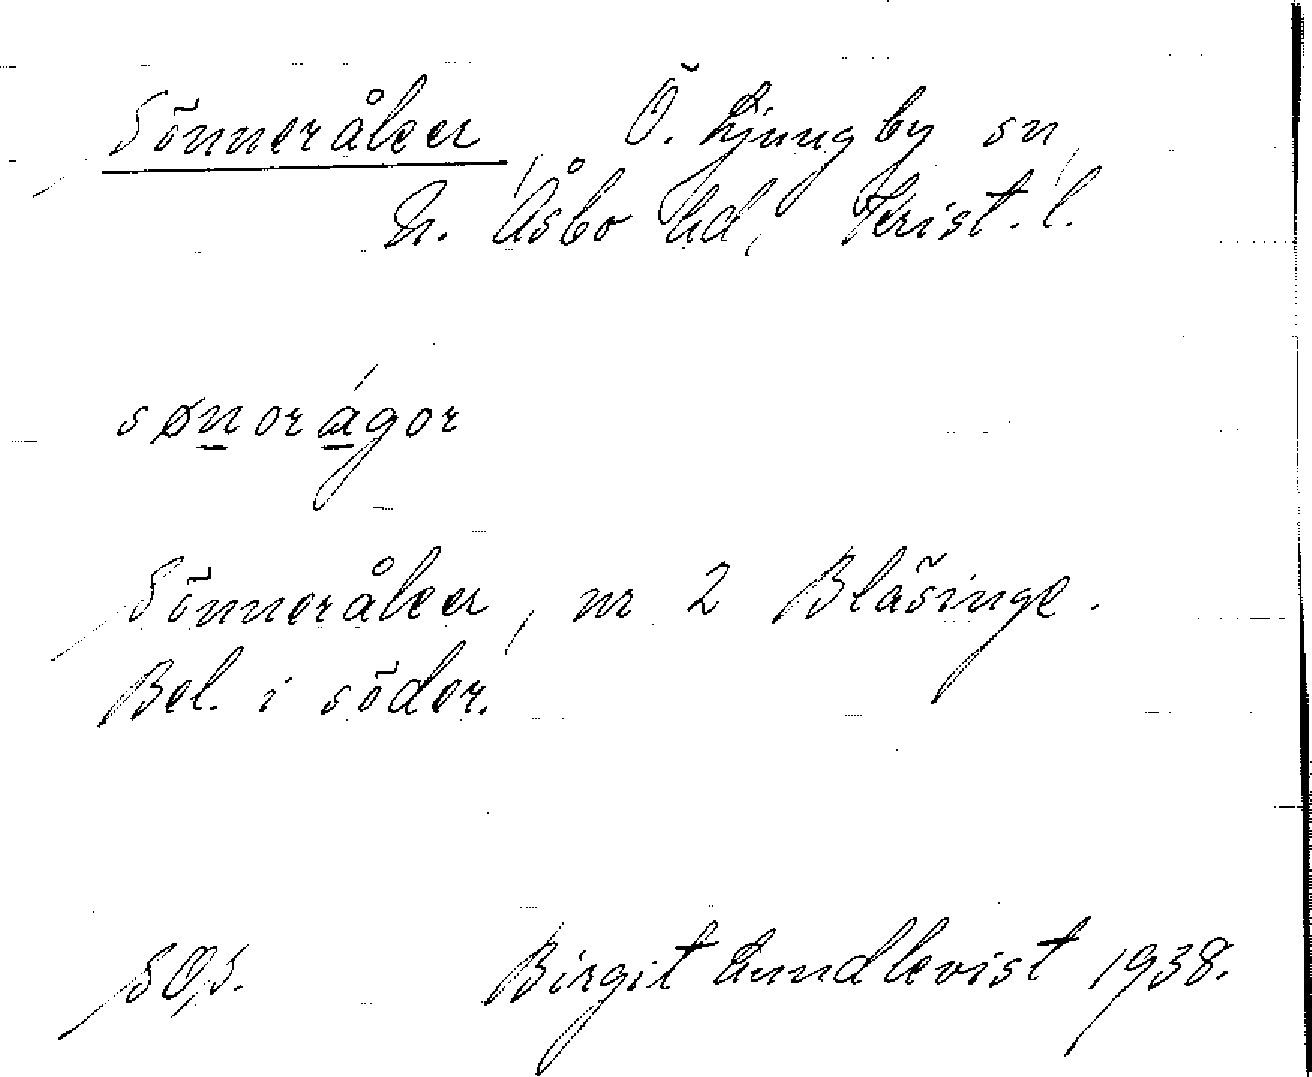 Sönneråker, Ö. Ljungby sn,
N. Åsbo hd, Krist. l.
sønorágor
Sönneråker, nr 2 Blåsinge.
Bel. i söder.
Birgit Lundkvist 1938.